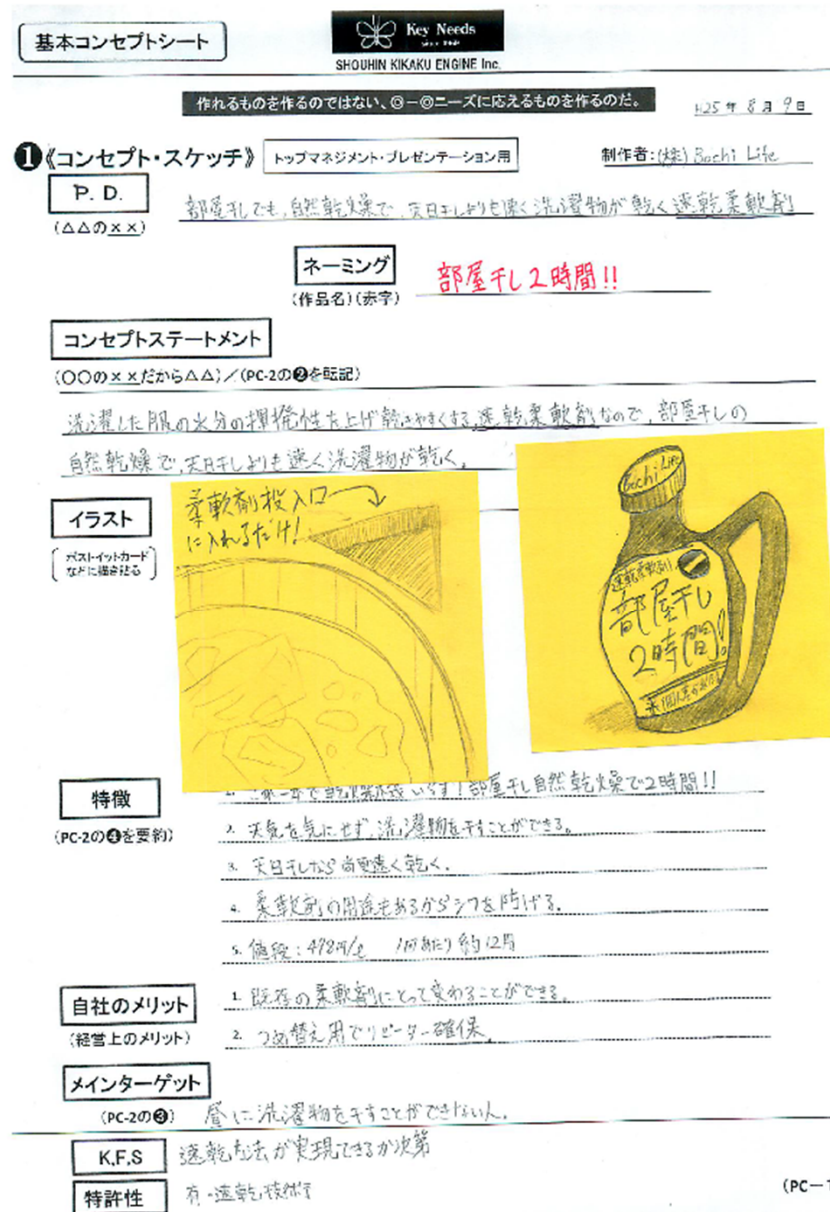 基本コンセプトシート
Key Needs
SHOUHIN KIKAKU ENGINE Inc.
作れるものを作るのではない、◎-◎ニーズに応えるものを作るのだ。
H25年8月9日
❶《コンセプト・スケッチ》 トップマネジメント・プレゼンテーション用
制作者:(株)Bochi Life
P. D.
(△△の××)
部屋干しでも、自然乾燥で、天日干しよりも速く洗濯物が乾く速乾柔軟剤
ネーミング
(作品名)(赤字)
部屋干し2時間!!
コンセプトステートメント
(〇〇の××だから△△)/(PC-2の❷を転記)
洗濯した服の水分の揮発性を上げ乾きやすくする速乾柔軟剤なので、部屋干しの
自然乾燥で、天日干しよりも速く洗濯物が乾く。
イラスト
ポストイットカード
などに描き貼る
柔軟剤投入口
に入れるだけ!
Bochi Life
速乾柔軟剤
部屋干し
2時間!
特徴
(PC-2の❹を要約)
1. 部屋干し自然乾燥で2時間!!
2. 天気を気にせず、洗濯物を干すことができる。
3. 天日干しなら尚更速く乾く。
4. 柔軟剤の用途もあるからシワを防げる。
5. 値段:498円/ℓ 1回あたり約12円
自社のメリット
(経営上のメリット)
1. 既存の柔軟剤にとって変わることができる。
2. つめ替え用でリピーター確保。
メインターゲット
(PC-2の❸)
昼に洗濯物を干すことができない人。
K,F,S
速乾方法が実現できるか次第
特許性
有-速乾技術
(PC-1